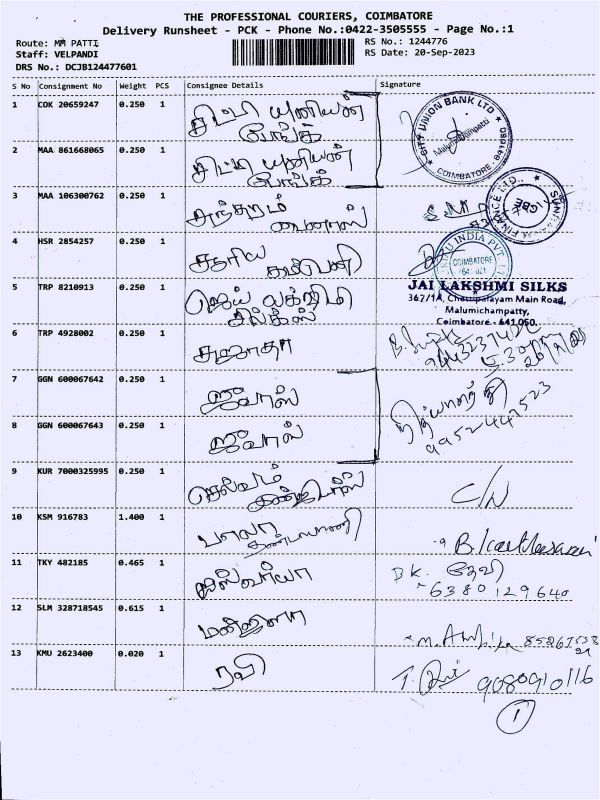 THE PROFESSIONAL COURIERS, COIMBATORE
Delivery Runsheet - PCK - Phone No.:0422-3505555 - Page No.:1
Route: MM PATTI
RS No.: 1244776
Staff: VELPANDI
RS Date: 20-Sep-2023
DRS No.: DCJB124477601
S No Consignment No Weight PCS Consignee Details Signature
1 COK 20659247 0.250 1 சிட்டி யூனியன்
பேங்க்
CITY UNION BANK LTD
Malumichampatti
COIMBATORE
2 MAA 861668065 0.250 1 சிட்டி யூனியன்
பேங்க்
3 MAA 106300762 0.250 1 சுந்தரம்
பைனான்ஸ்
FINANCE LTD.,
4 HSR 2854257 0.250 1
INDIA PVT
COIMBATORE
641 021
5 TRP 8210913 0.250 1 ஜெய் லக்ஷ்மி
சில்க்ஸ்
JAI LAKSHMI SILKS
367/1A, Chettipalayam Main Road,
Malumichampatty,
Coimbatore - 641 050.
6 TRP 4928002 0.250 1 சுஜாதா
7 GGN 600067642 0.250 1
8 GGN 600067643 0.250 1
9952447523
9 KUR 7000325995 0.250 1 செல்வம்
C/N
10 KSM 916783 1.400 1 பாலா
11 TKY 482185 0.465 1 ஐஸ்வர்யா
DK. தேவி
6380129640
12 SLM 328718545 0.615 1 மஞ்சுளா
M. Ambika
13 KMU 2623400 0.020 1 ரவி
T. Ravi 9080910116
1